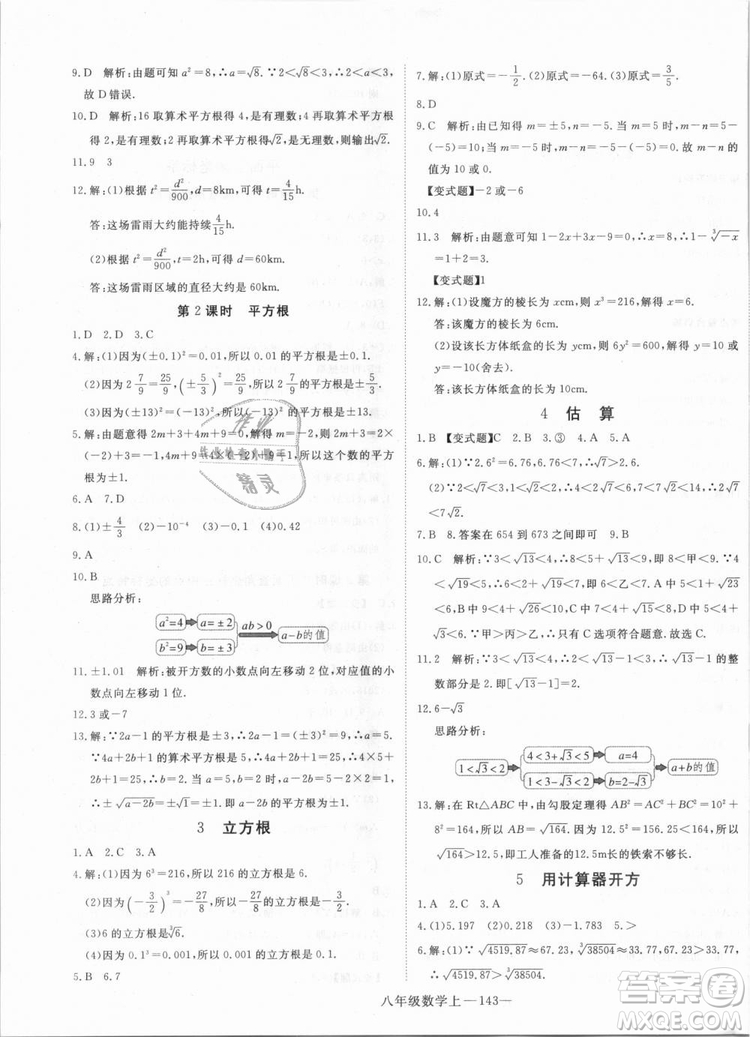 9. D　解析:由题可知 a²=8,∴a=√8. ∵2<√8<3,∴2<a<3,
故 D 错误.
10. D　解析:16 取算术平方根得 4,是有理数;4 取算术平方根得
2,是有理数;2 再取算术平方根得√2,是无理数,所以输出√2.
11. 9　3
12. 解:(1)根据 t²=d³/900,d=8km,可得 t=4/15 h.
答:这场雷雨大约能持续 4/15 h.
(2)根据 t²=d³/900,t=2h,可得 d=60km.
答:这场雷雨区域的直径大约为 60km.
第 2 课时　平方根
1. D　2. D　3. C
4. 解:(1)因为(±0.1)²=0.01,所以 0.01 的平方根为±0.1.
(2)因为 2 7/9=25/9,(±5/3)²=25/9,所以 2 7/9 的平方根为±5/3.
(3)因为(±13)²=(−13)²,所以(−13)²的平方根为±13.
5. 解:由题意得 2m+3+4m+9=0,解得 m=−2,所以这个数的平方
根为±1.
6. A　7. D
8. (1)±4/3　(2)−10⁻⁴　(3)−0.1　(4)0.42
9. A
10. B
思路分析:
a²=4
a=±2
b²=9
b=±3
ab>0
a−b的值
11. ±1.01　解析:被开方数的小数点向左移动 2 位,对应值的小
数点向左移动 1 位.
12. 3 或−7
13. 解:∵2a−1 的平方根是±3,∴2a−1=(±3)²=9,∴a=5.
∵4a+2b+1 的算术平方根是 5,∴4a+2b+1=5²=25,∴b=2.
∴±√a−2b=±√1=±1,即 a−2b 的平方根为±1.
3　立方根
1. A　2. C　3. A
4. 解:(1)因为 6³=216,所以 216 的立方根是 6.
(2)因为(−3/2)³=−27/8,所以−27/8的立方根是−3/2.
(3)6 的立方根是∛6.
(4)因为 0.1³=0.001,所以 0.001 的立方根是 0.1.
5. B　6. 7
7. 解:(1)原式=−1/2.　(2)原式=−64.　(3)原式=5.
8. D
9. C　解析:由已知得 m=±5,n=−5. 当 m=5 时,m−n=5−
(−5)=10;当 m=−5 时,m−n=−5−(−5)=0. 所以 m−n 的
值为 10 或 0.
【变式题】−2 或−6
10. 4
11. 3　解析:由题意可知 1−2x+3x−5=0,∴x=4,∴1−∛−x
=1+2=3.
【变式题】1
12. 解:(1)设魔方的棱长为 xcm,则 x³=216,解得 x=6.
答:该魔方的棱长为 6cm.
(2)设该长方体纸盒的长为 ycm,则 6y²=600,解得 y=10,y
=−10(舍去).
答:该长方体纸盒的长为 10cm.
4　估　算
1. B　【变式题】C　2. B　3. ③　4. A　5. A
6. 解:(1)∵2.6²=6.76,6.76<7,∴√7>2.6.
(2)∵√2<1.5,∴√2+1<1.5+1=2.5. ∵√7>2.5,∴√2+1
<√7.
7. B　8. 答案在 654 到 673 之间即可　9. B
10. C　解析:∵3<√13<4,∴8<5+√13<9,∴8<甲<9. ∵4<
√19<5,∴7<3+√19<8,∴7<丙<8,∴丙<甲,∵4<√23
<5,∴5<1+√23<6,∴5<乙<6.
11. 2　解析:∵3<√13<4,∴2<√13−1<3,∴√13−1 的整
数部分是 2. 即[√13−1]=2.
12. 6−√3
思路分析:
1<√3<2
4<3+√3<5
a=4
1<3−√3<2
b=2−√3
a+b的值
13. 解:在 Rt△ABC 中,由勾股定理得 AB²=AC²+BC²=10²+
8²=164,所以 AB=√164. 因为 12.5²=156.25<164,所以
√164>12.5,即工人准备的 12.5m 长的铁索不够用.
5　用计算器开方
1. A　2. C　3. A
4. (1)5.197　(2)0.218　(3)−1.783　5. 7
6. 解:(1)∵√4519.87≈67.23,∛38504≈33.77,67.23>33.77,
∴√4519.87>∛38504.
八年级数学上—143—
作业
精灵
作业精灵
MXQE.COM